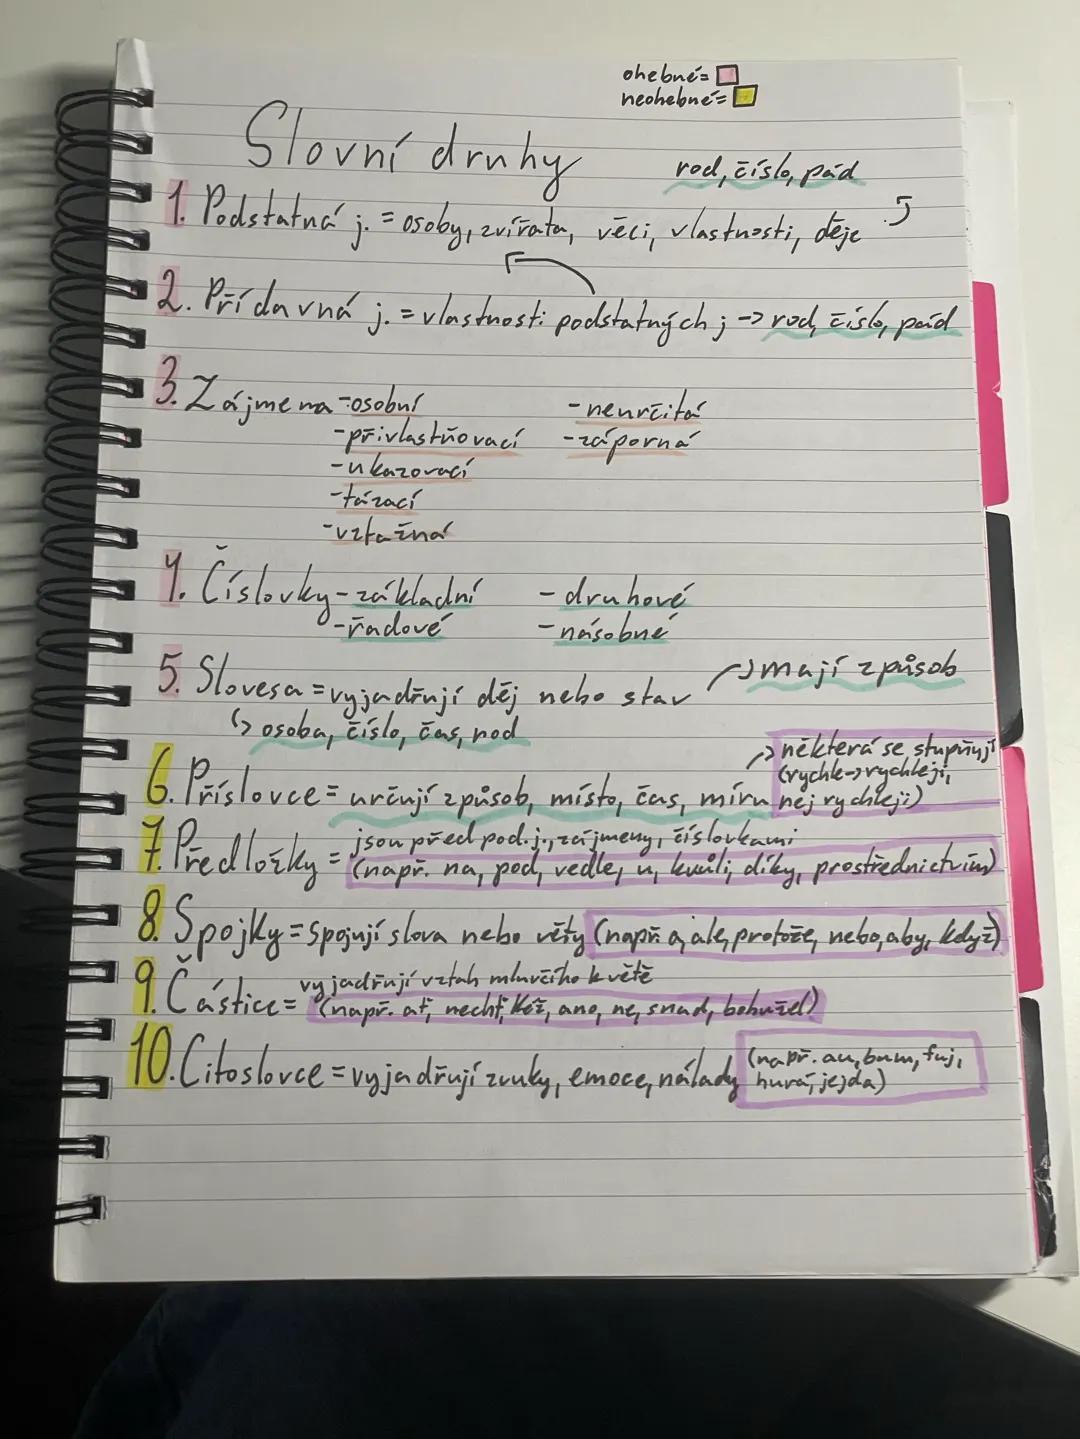 ohebné=
neohebné=
Slovní druhy
rod, číslo, pád
1. Podstatná j. = osoby, zvířata, věci, vlastnosti, děje
2. Přídavná j. = vlastnosti podstatných j -> rod, číslo, pád
3. Zájmena -osobní
-přivlastňovací
-ukazovací
-tázací
-vztažná
-neurčitá
-záporná
4. Číslovky -základní
-řadové
-druhové
-násobné
5. Slovesa = vyjadřují děj nebo stav
-> mají způsob
-> osoba, číslo, čas, rod
-> některá se stupňují
(rychle->rychleji,
nejrychleji)
6. Příslovce = určují způsob, místo, čas, míru
7. Předložky = jsou před pod.j., zájmeny, číslovkami
(např. na, pod, vedle, u, kvůli, díky, prostřednictvím)
8. Spojky = Spojují slova nebo věty (např a, ale, protože, nebo, aby, když)
9. Částice = vyjadřují vztah mluvčího k větě
(např. ať, nechť, kéž, ano, ne, snad, bohužel)
10. Citoslovce = vyjadřují zvuky, emoce, nálady
(např. au, bum, fuj,
hurá, jejda)